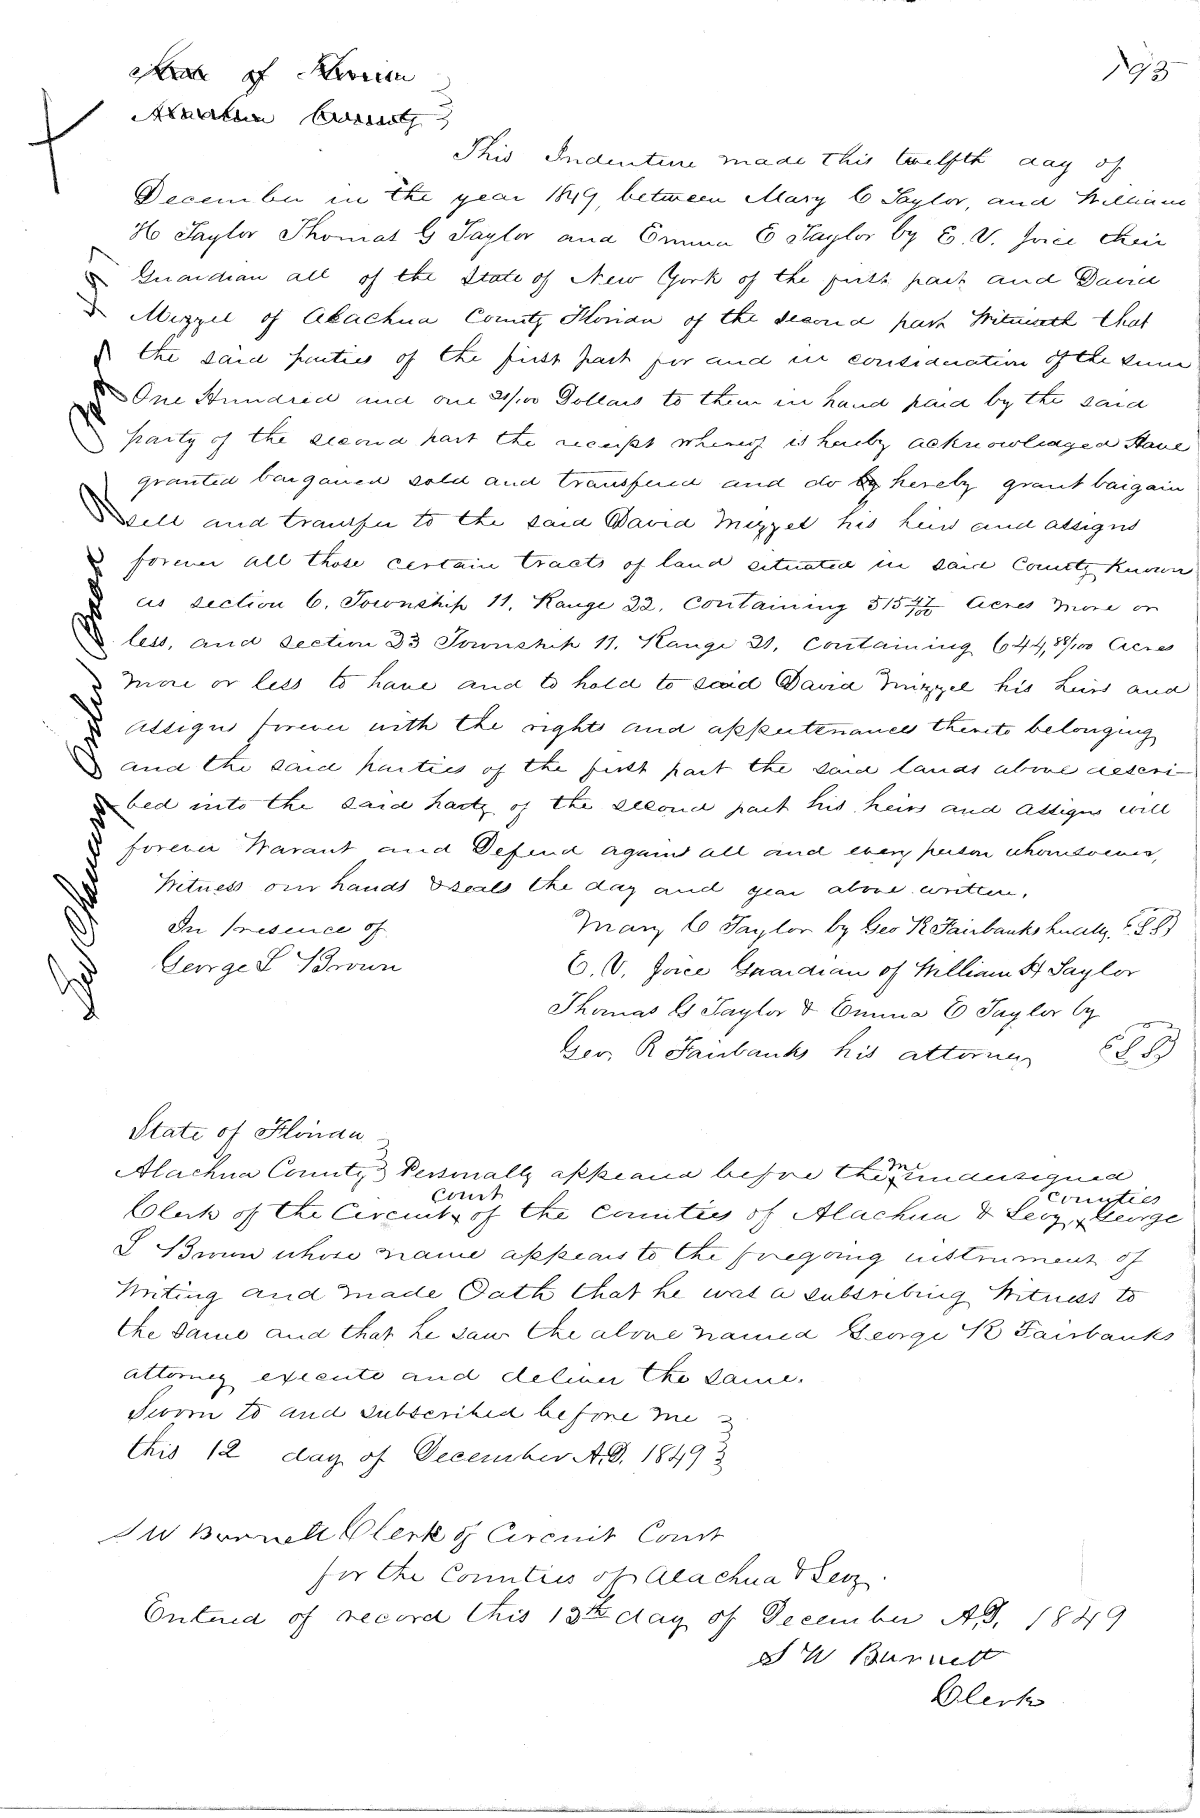 193
State of Florida
Alachua County
This Indenture made this twelfth day of
December in the year 1849, between Mary C Taylor, and William
H Taylor Thomas G Taylor and Emma E Taylor by E. V. Joice their
Guardian all of the State of New York of the first part and David
Mizzel of Alachua County Florida of the second part Witneseth that
the said parties of the first part for and in consideration of the sum
One Hundred and one 21/100 Dollars to them in hand paid by the said
party of the second part the receipt whereof is hereby acknowledged Have
granted bargained sold and transfered and do by hereby grant bargain
sell and transfer to the said David Mizzel his heirs and assigns
forever all those certain tracts of land situated in said County Known
as section 6. Township 11. Range 22. Containing 515 47/100 Acres more or
less, and section 23 Township 11. Range 21. Containing 644, 88/100 Acres
more or less to have and to hold to said David Mizzel his heirs and
assigns forever with the rights and appertenances thereto belonging
and the said parties of the first part the said lands above descri-
bed into the said party of the second part his heirs and assigns will
forever Warant and Defend against all and every person whomsoever,
Witness our hands & seals the day and year above written.
In presence of
George S Brown
Mary C Taylor by Geo R Fairbanks her atty. LS
E. V. Joice Guardian of William H Taylor
Thomas G Taylor & Emma E Taylor by
Geo. R Fairbanks his attorney LS
State of Florida
Alachua County Personally appeard before the me undersigned
Clerk of the Circuit Court of the counties of Alachua & Levy counties George
S Brown whose name appears to the foregoing instrument of
Writing and made Oath that he was a subscribing Witness to
the same and that he saw the above named George R Fairbanks
attorney execute and deliver the same.
Sworn to and subscribed before me
this 12 day of December A.D. 1849
S W Burnett Clerk of Circuit Court
for the Counties of Alachua & Levy.
Entered of record this 13th day of December A.D. 1849
S W Burnett
Clerk
See Chancery Order Book Page